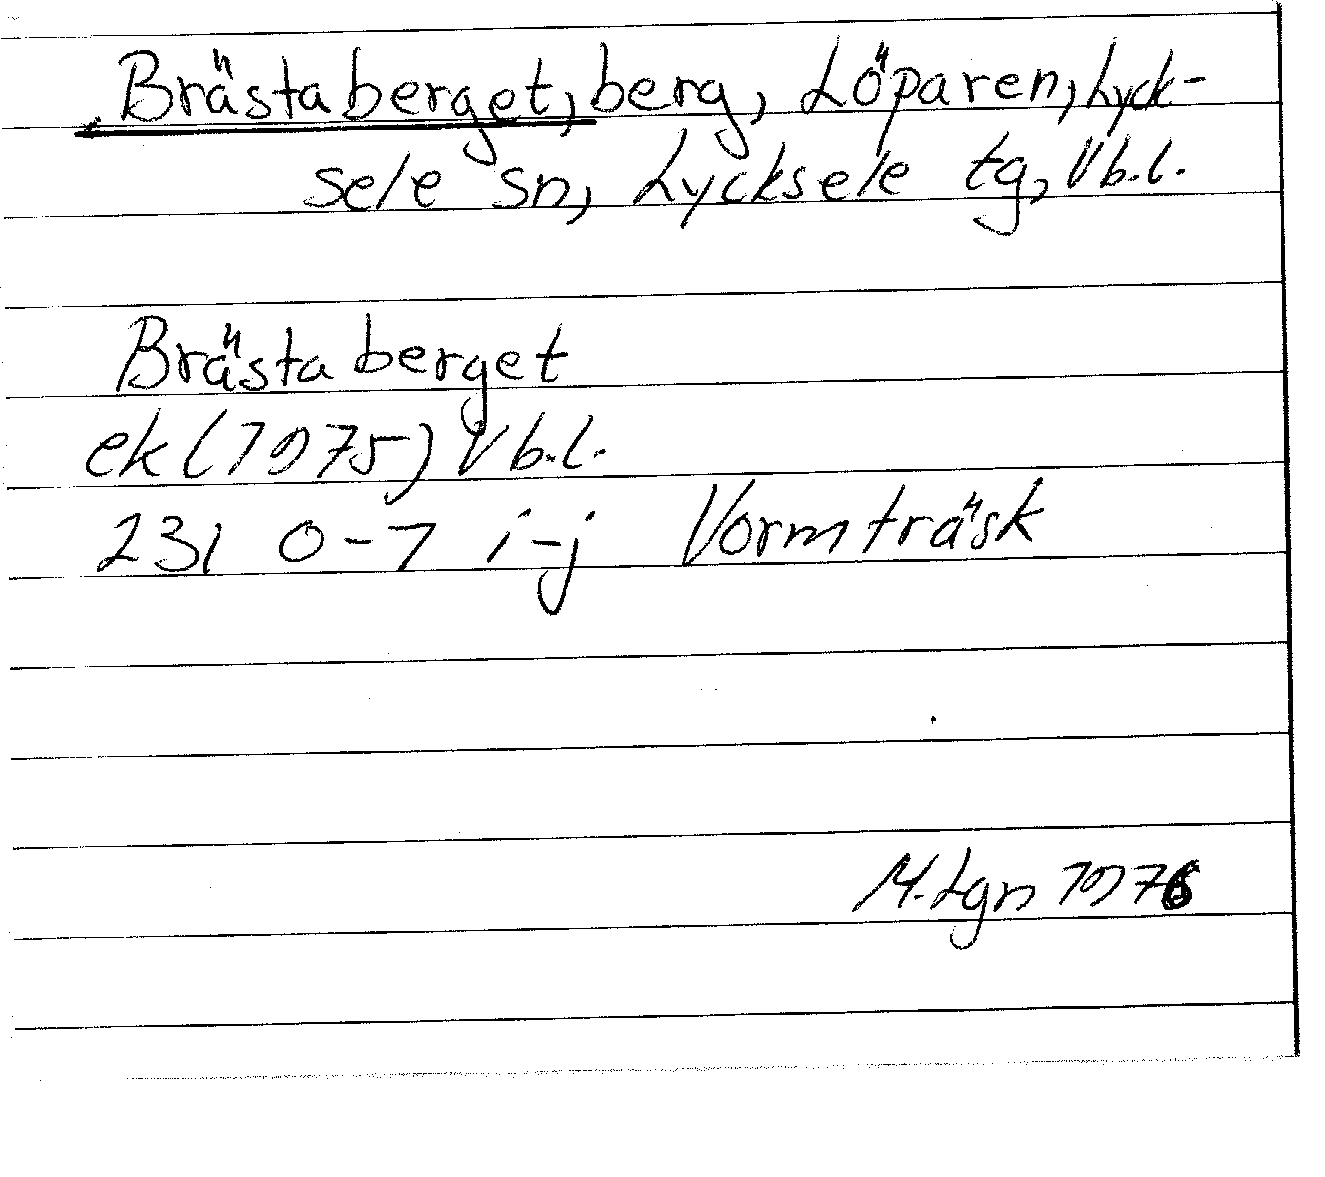 Brästaberget, berg, Löparen, Lyck-
sele sn, Lycksele tg, Vb.l.
Brästaberget
ek (1975) Vb.l.
23I 0-1 i-j Vormträsk
M. Lgn 1976